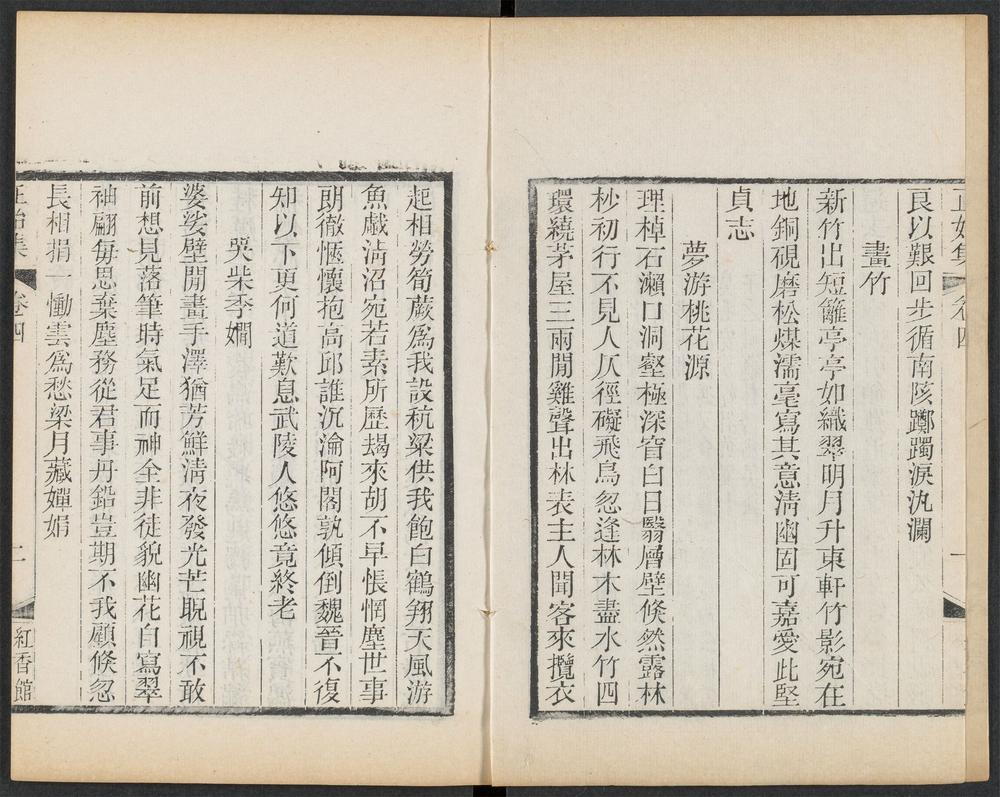 正始集 卷四
良以艱回步循南陔躑躅淚汍瀾
畫竹
新竹出短籬亭亭如織翠明月升東軒竹影宛在
地銅硯磨松煤濡毫寫其意淸幽固可嘉愛此堅
貞志
夢游桃花源
理棹石瀨口洞壑極深窅白日翳層壁倏然露林
杪初行不見人仄徑礙飛鳥忽逢林木盡水竹四
環繞茅屋三兩閒雞聲出林表主人聞客來攬衣
起相勞筍蕨爲我設秔粱供我飽白鶴翔天風游
魚戲淸沼宛若素所歷朅來胡不早悵惘塵世事
朗徹愜懷抱高邱誰沉淪阿閣孰傾倒魏晉不復
知以下更何道歎息武陵人悠悠竟終老
哭柴季嫺
婆娑壁閒畫手澤猶芳鮮淸夜發光芒睨視不敢
前想見落筆時氣足而神全非徒貌幽花自寫翠
袖翩每思棄塵務從君事丹鉛豈期不我顧倏忽
長相捐一慟雲爲愁梁月藏嬋娟
正始集 卷四 二 紅香館